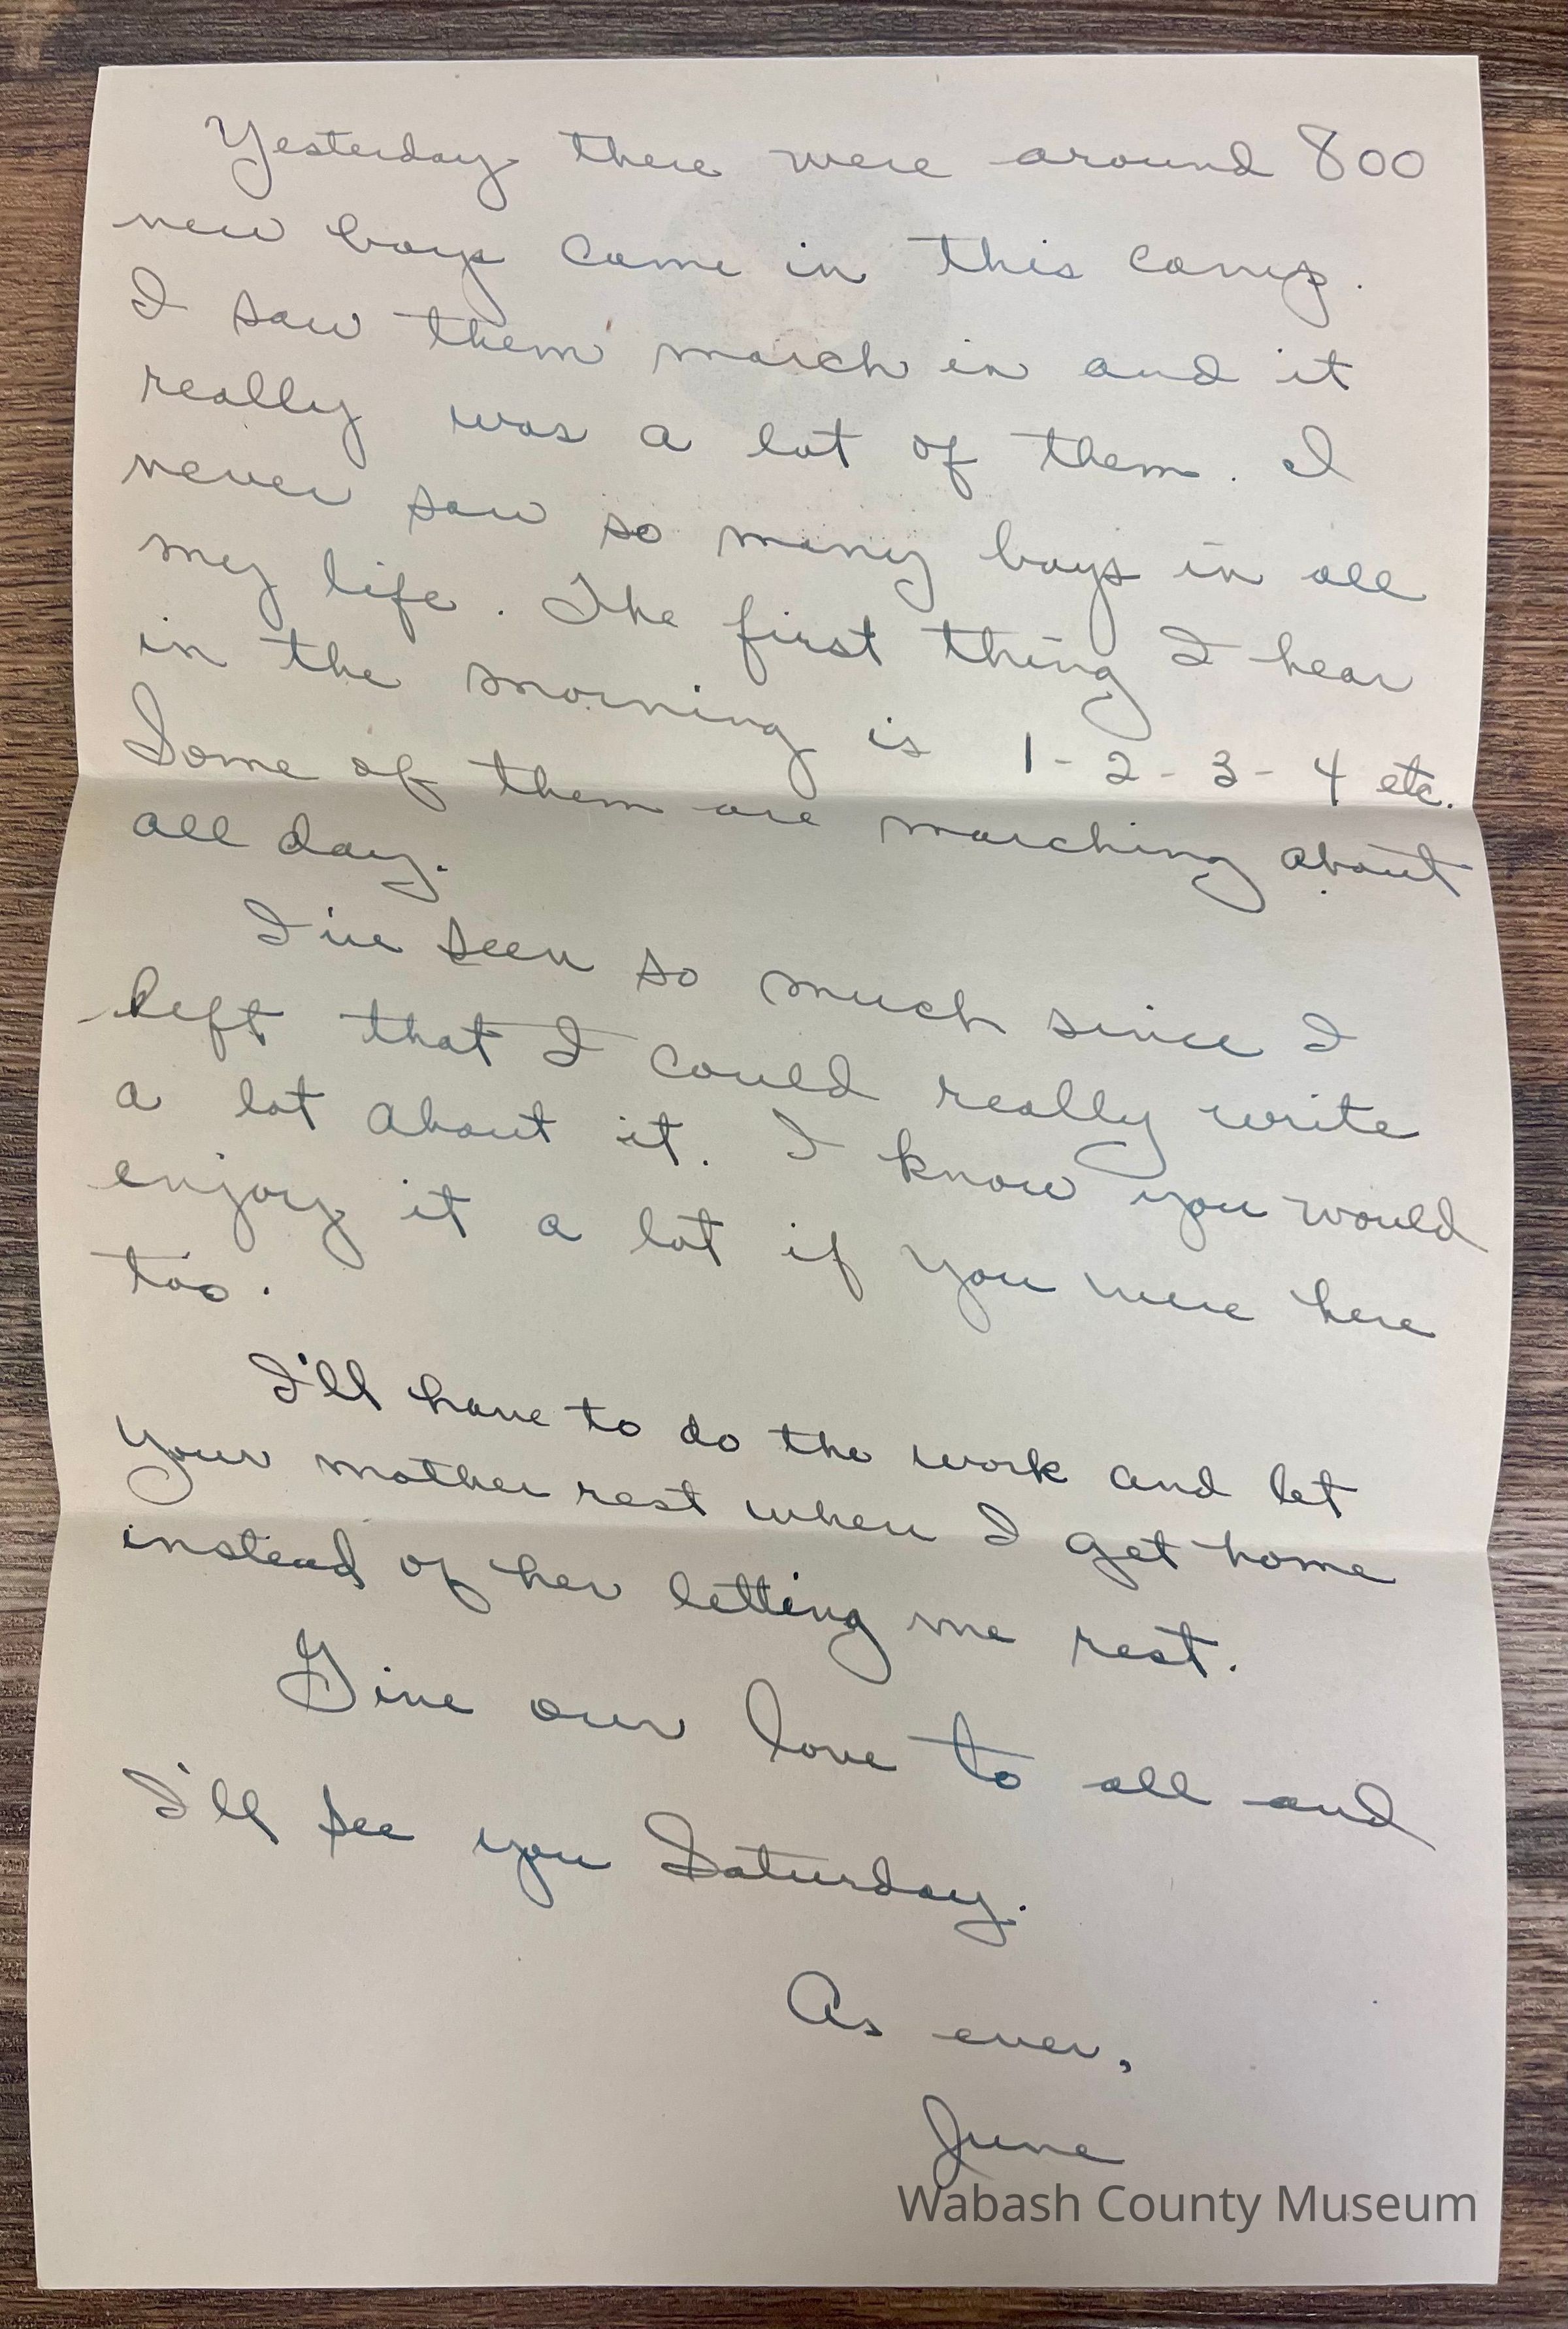 Yesterday there were around 800
new boys come in this camp.
I saw them march in and it
really was a lot of them. I
never saw so many boys in all
my life. The first thing I hear
in the morning is 1-2-3-4 etc.
Some of them are marching about
all day.
I've seen so much since I
left that I could really write
a lot about it. I know you would
enjoy it a lot if you were here
too.
I'll have to do the work and let
your mother rest when I get home
instead of her letting me rest.
Give our love to all and
I'll see you Saturday.
As ever,
June
Wabash County Museum